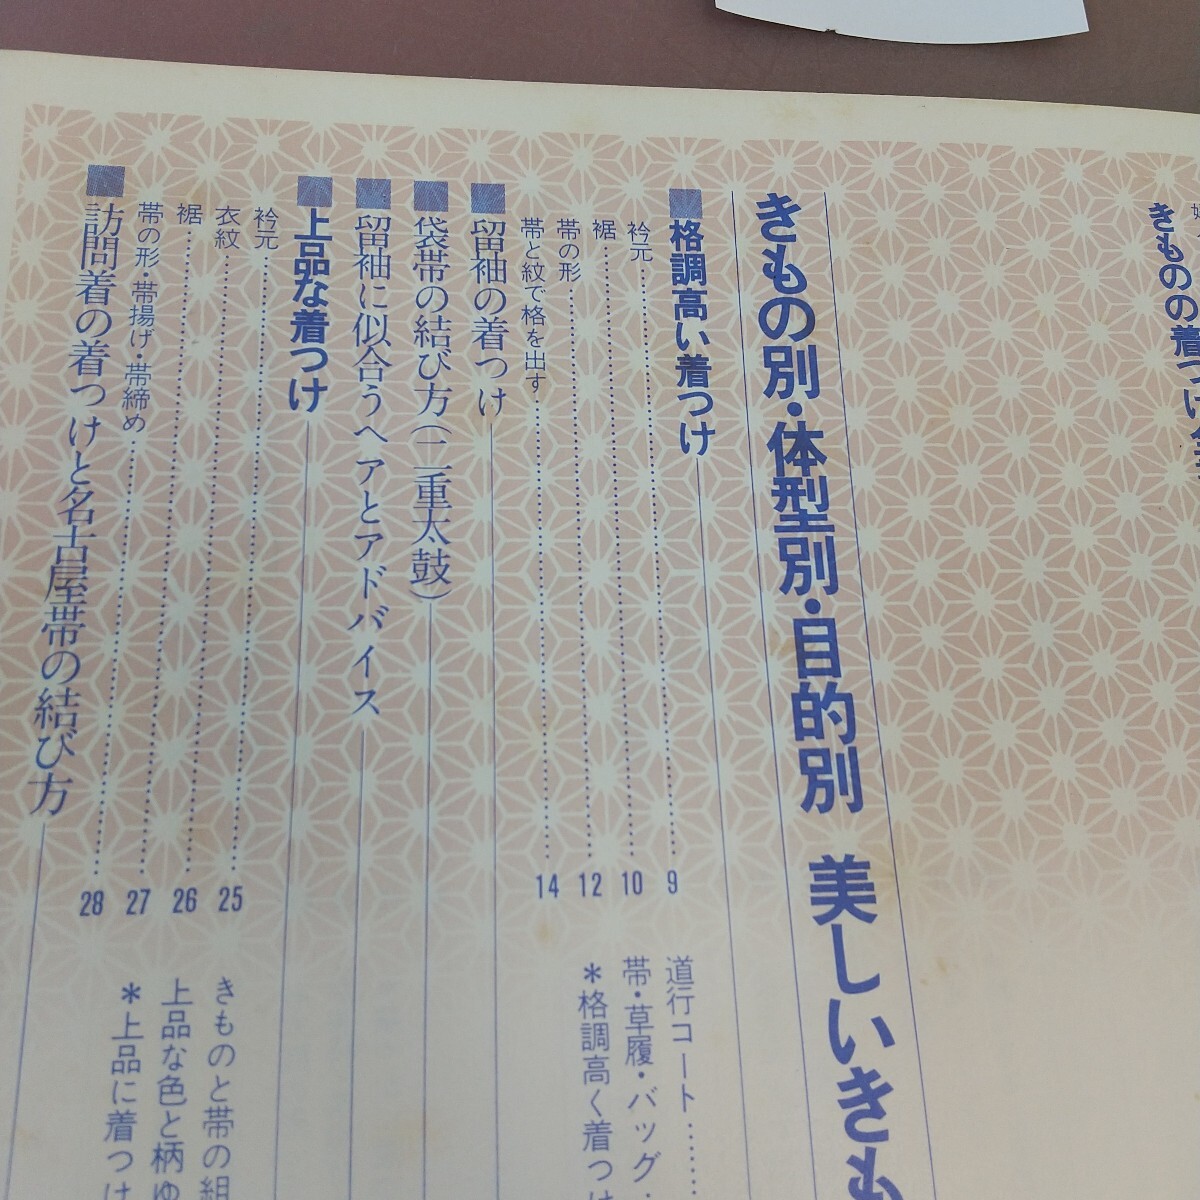 きものの着つけ
きもの別・体型別・目的別 美しいきも
■格調高い着つけ
衿元 9
裾 10
帯の形 12
帯と紋で格を出す 14
道行コート
帯・草履・バッグ
＊格調高く着つけ
■留袖の着つけ
■袋帯の結び方(二重太鼓)
■留袖に似合うヘアとアドバイス
■上品な着つけ
衿元 25
衣紋 26
裾 27
帯の形・帯揚げ・帯締め 28
きものと帯の組
上品な色と柄ゆ
＊上品に着つけ
■訪問着の着つけと名古屋帯の結び方